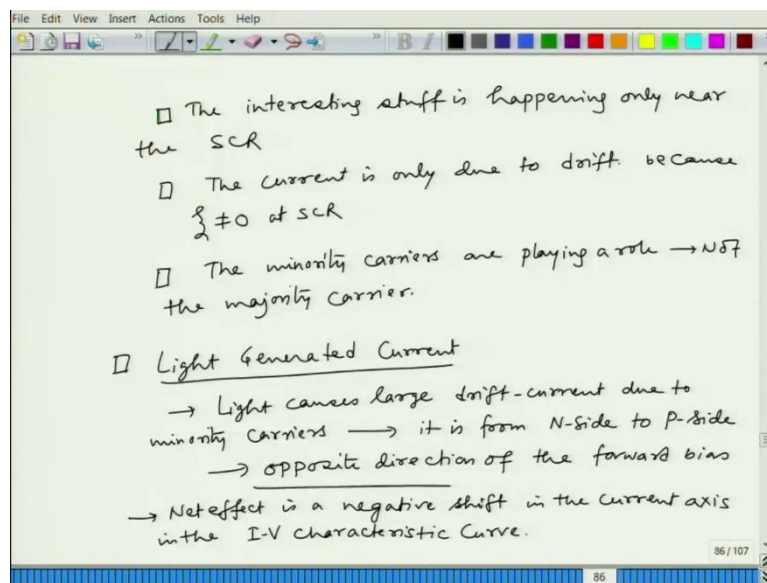 File Edit View Insert Actions Tools Help
B I
□ The interesting stuff is happening only near
the SCR
□ The current is only due to drift. because
ξ ≠ 0 at SCR
□ The minority carriers are playing a role → Not
the majority carrier.
□ Light Generated Current
→ Light causes large drift-current due to
minority carriers → it is from N-side to P-side
→ opposite direction of the forward bias
→ Net effect is a negative shift in the current axis
in the I-V characteristic Curve.
86 / 107
86